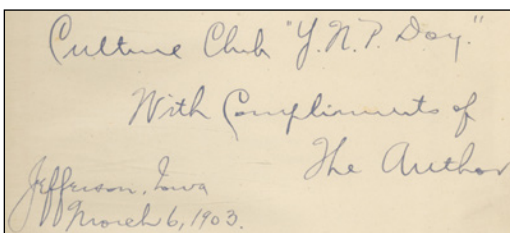 Culture Club "Y.N.P. Day."
With Compliments of
The Author
Jefferson, Iowa
March 6, 1903.